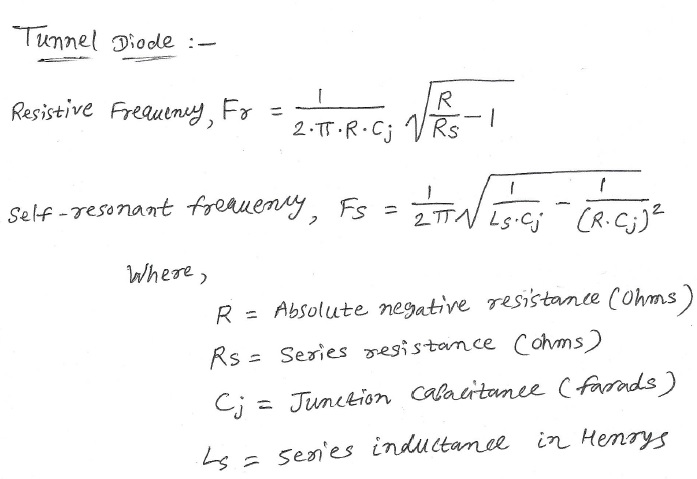 Tunnel Diode :-
Resistive Frequency, Fr = 1/(2·π·R·Cj) √(R/Rs - 1)
Self-resonant frequency, Fs = 1/(2π) √(1/(Ls·Cj) - 1/(R·Cj)²)
Where,
R = Absolute negative resistance (Ohms)
Rs = Series resistance (ohms)
Cj = Junction capacitance (farads)
Ls = series inductance in Henrys